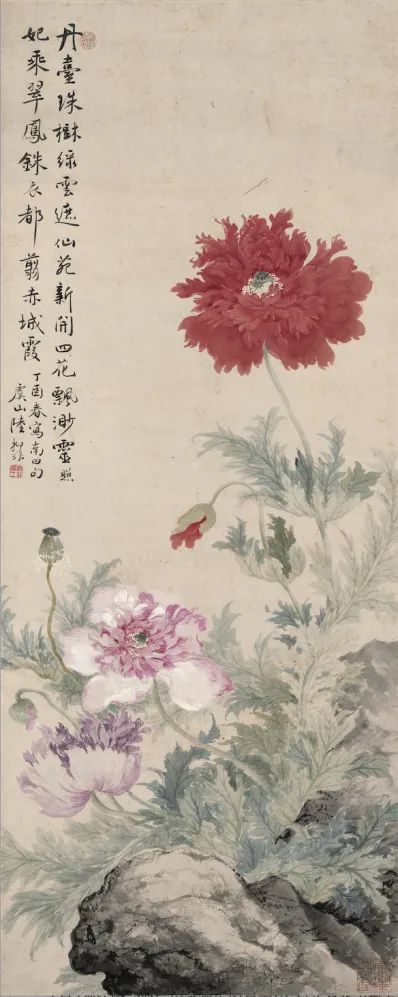 丹臺珠樹綠雲遮仙苑新開四花飄渺靈照
妃乘翠鳳銖衣都翦赤城霞
丁酉春寫南田句
虞山陸抑非